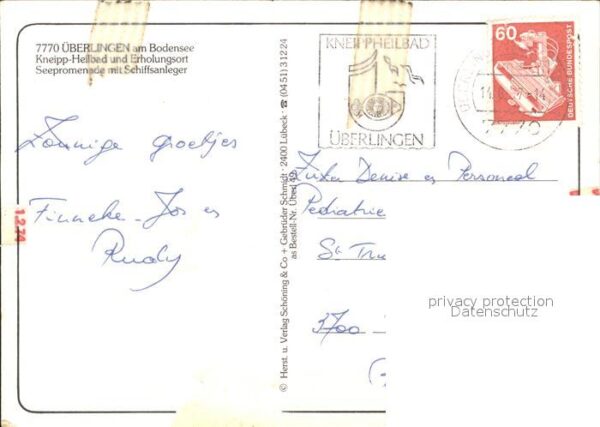 7770 ÜBERLINGEN am Bodensee
Kneipp-Heilbad und Erholungsort
Seepromenade mit Schiffsanleger
KNEIPPHEILBAD
ÜBERLINGEN
60
DEUTSCHE BUNDESPOST
7770
Zonnige groetjes
Finneke-Jos en
Rudy
Zuster Denise en Personeel
Pediatrie
St Tru
3700
1.2.74
© Herst. u. Verlag Schöning & Co + Gebrüder Schmidt · 2400 Lübeck · ☎ (04 51) 3 12 24
as Bestell-Nr. Übe
privacy protection
Datenschutz